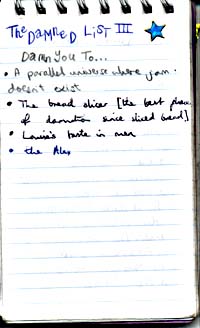 The DAMNED LiST III
Damn You To...
• A parallel universe where jam
doesn't exist
• The bread slicer [the best place
of damnation since sliced bread]
• Louise's taste in men
• the Alex